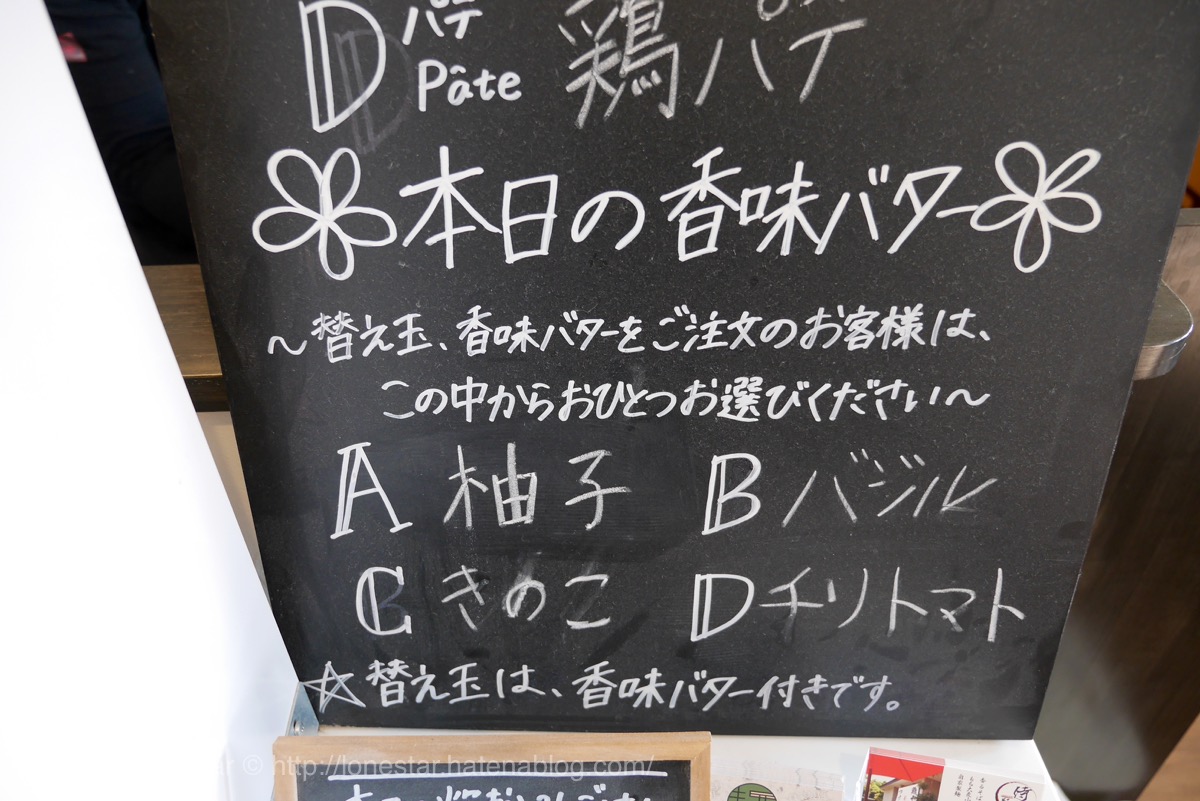 D パテ 鶏パテ
Pâte
本日の香味バター
～替え玉、香味バターをご注文のお客様は、
この中からおひとつお選びください～
A 柚子 B バジル
C きのこ D チリトマト
☆替え玉は、香味バター付きです。
© http://lonestar.hatenablog.com/